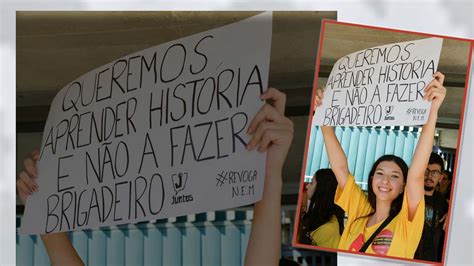 QUEREMOS
APRENDER HISTÓRIA
E NÃO A FAZER
BRIGADEIRO
Juntos
#REVOGA
N.E.M
QUEREMOS
APRENDER HISTÓRIA
E NÃO A FAZER
BRIGADEIRO
Juntos
#REVOGA
N.E.M